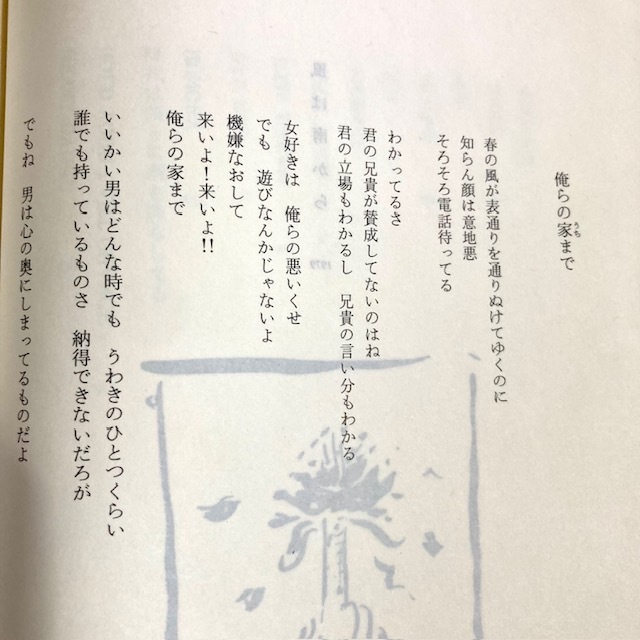 俺らの家まで
うち
春の風が表通りを通りぬけてゆくのに
知らん顔は意地悪
そろそろ電話待ってる
わかってるさ
君の兄貴が賛成してないのはね
君の立場もわかるし　兄貴の言い分もわかる
女好きは　俺らの悪いくせ
でも　遊びなんかじゃないよ
機嫌なおして
来いよ！来いよ!!
俺らの家まで
いいかい男はどんな時でも　うわきのひとつくらい
誰でも持っているものさ　納得できないだろが
でもね　男は心の奥にしまってるものだよ
風は南から
1979